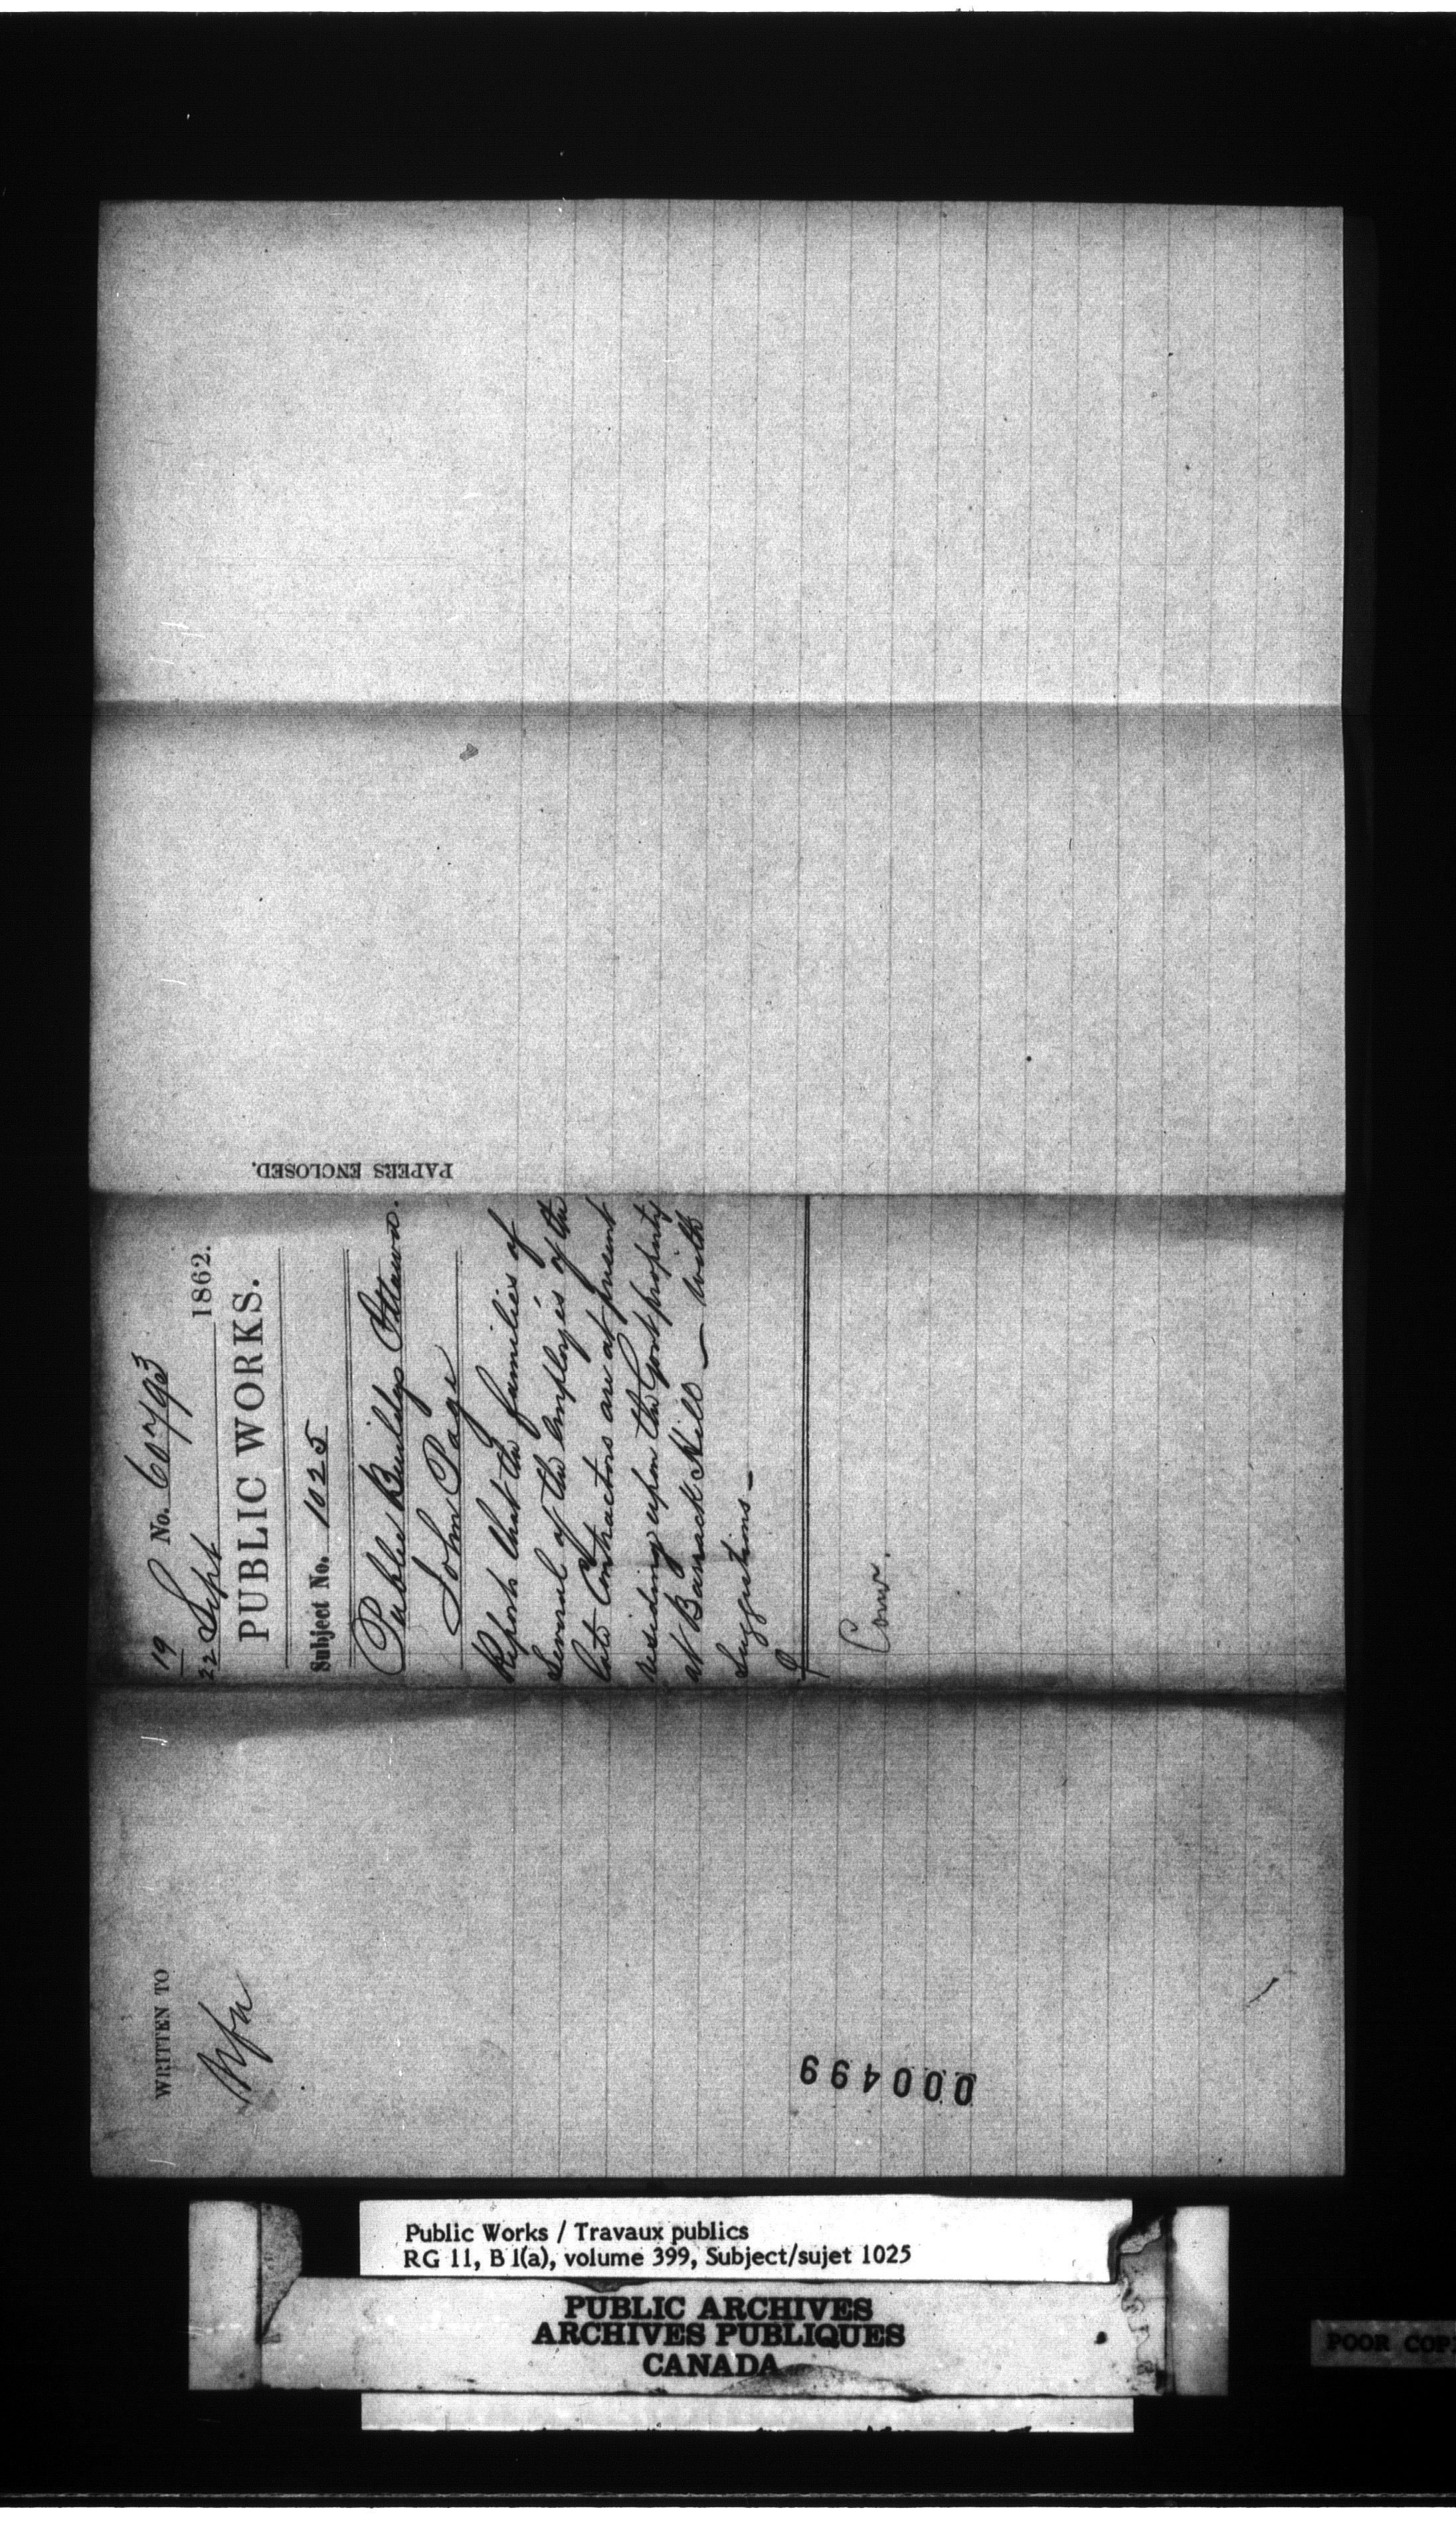 19
22 Sept 1862.
No. 60793
PUBLIC WORKS.
Subject No. 1025
Public Buildgs Ottawa.
John Page
Reports that the families of
Several of the Employés of the
late Contractors are at present
residing upon the Govt property
at Barrack Hill — with
Suggestions —
PAPERS ENCLOSED.
WRITTEN TO
000499
Public Works / Travaux publics
RG 11, B 1(a), volume 399, Subject/sujet 1025
PUBLIC ARCHIVES
ARCHIVES PUBLIQUES
CANADA
POOR COP